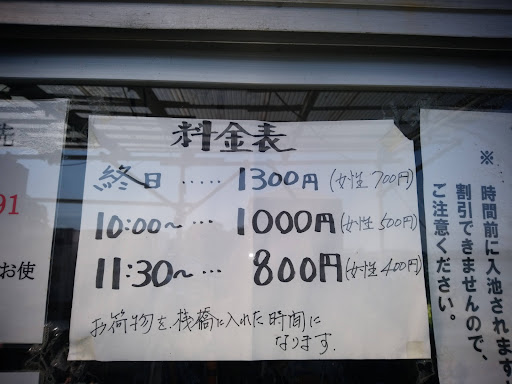 料金表
終日 ‥‥‥ 1300円 (女性 700円)
10:00〜 … 1000円 (女性 500円)
11:30〜 … 800円 (女性 400円)
お荷物を、桟橋に入れた時間に
なります.
※ 時間前に入池されます
割引できませんので、
ご注意ください。
先
91
お使